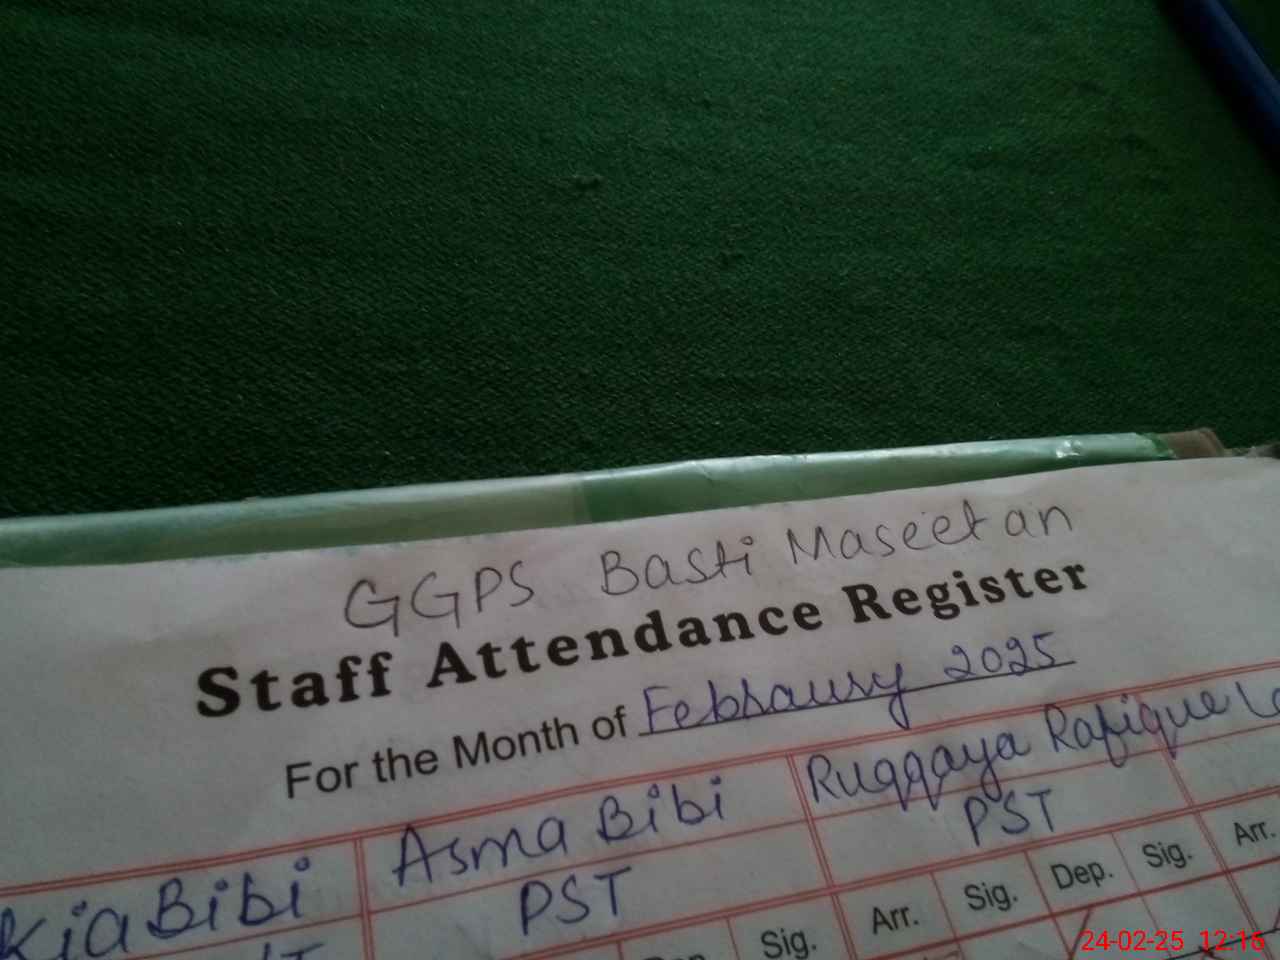 GGPS Basti Maseetan
Staff Attendance Register
For the Month of February 2025
kia Bibi Asma Bibi Ruqqaya Rafique
PST PST
Sig. Arr. Sig. Dep. Sig. Arr.
24-02-25 12:16